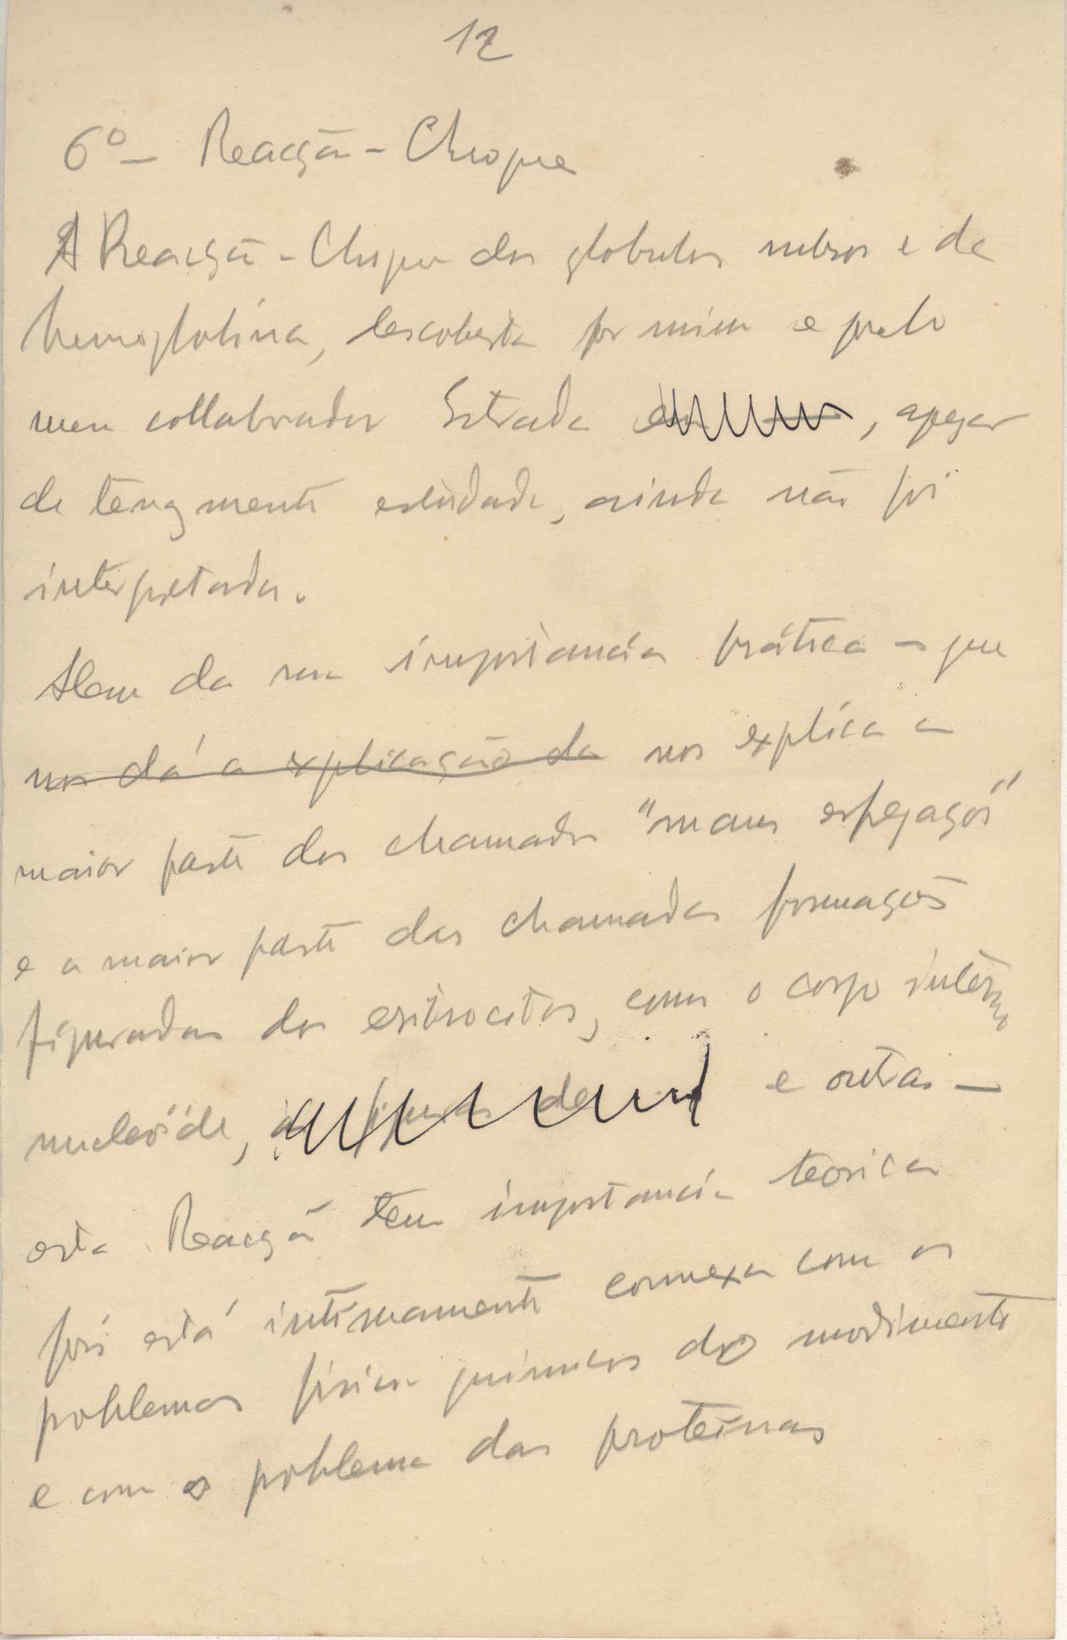 12
6º - Reacção - Choque
A Reacção - Choque dos globulos rubros e da
hemoglobina, descoberta por mim e pelo
meu collaborador Estrada , apezar
de tenazmente estudada, ainda não foi
interpretada.
Alem da sua importancia prática - que
nos dá a explicação da nos explica a
maior parte dos chamados "maus esfregaços"
e a maior parte das chamadas formações
figuradas dos eritrocitos, como o corpo interno
nucleoide, e outras -
esta Reacção tem importancia teorica
pois está intimamente connexa com os
problemas fisico quimicos do movimento
e com o problema das proteinas